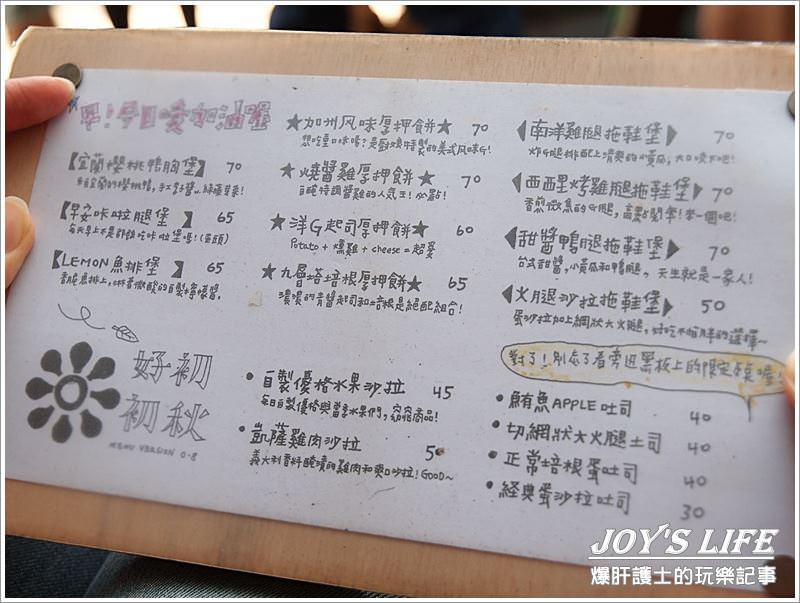 早!今日要加油喔
【宜蘭櫻桃鴨胸堡】 70
來自宜蘭的櫻桃鴨,
【早安咔啦腿堡】 65
每天早上不是都該吃咔啦堡嗎!(歪頭)
【LEMON魚排堡】 65
香脆魚排上,淋香微酸的自製檸檬醬。
好初
初秋
MENU VERSION 0.8
★加州风味厚押餅★ 70
想吃重口味嗎?是廚娘特製的美式风味G!
★燒醬雞厚押餅★ 70
自醃特調醬雞的人気王!必點!
★洋G起司厚押餅★ 60
Potato + 燻雞 + cheese = 超宴
★九層塔培根厚押餅★ 65
濃濃的青醬起司和培根是絕配組合!
• 自製優格水果沙拉 45
每日自製優格與當季水果們,窈窕商品!
• 凱薩雞肉沙拉 50
義大利香料醃漬的雞肉和爽口沙拉!GOOD~
【南洋雞腿拖鞋堡】 70
炸G腿排配上清爽的小黃瓜,大口咬下吧!
【西西里烤雞腿拖鞋堡】 70
香煎微焦的G腿,
【甜醬鴨腿拖鞋堡】 70
台式甜醬,小黃瓜和鴨腿,天生就是一家人!
【火腿沙拉拖鞋堡】 50
蛋沙拉加上網狀大火腿,好吃不怕胖的選擇~
對了!別忘了看旁边黑板上的限定口臭喔!
• 鮪魚APPLE吐司 40
• 切網狀大火腿土司 40
• 正常培根蛋吐司 40
• 経典蛋沙拉吐司 30
JOY'S LIFE
爆肝護士的玩樂記事